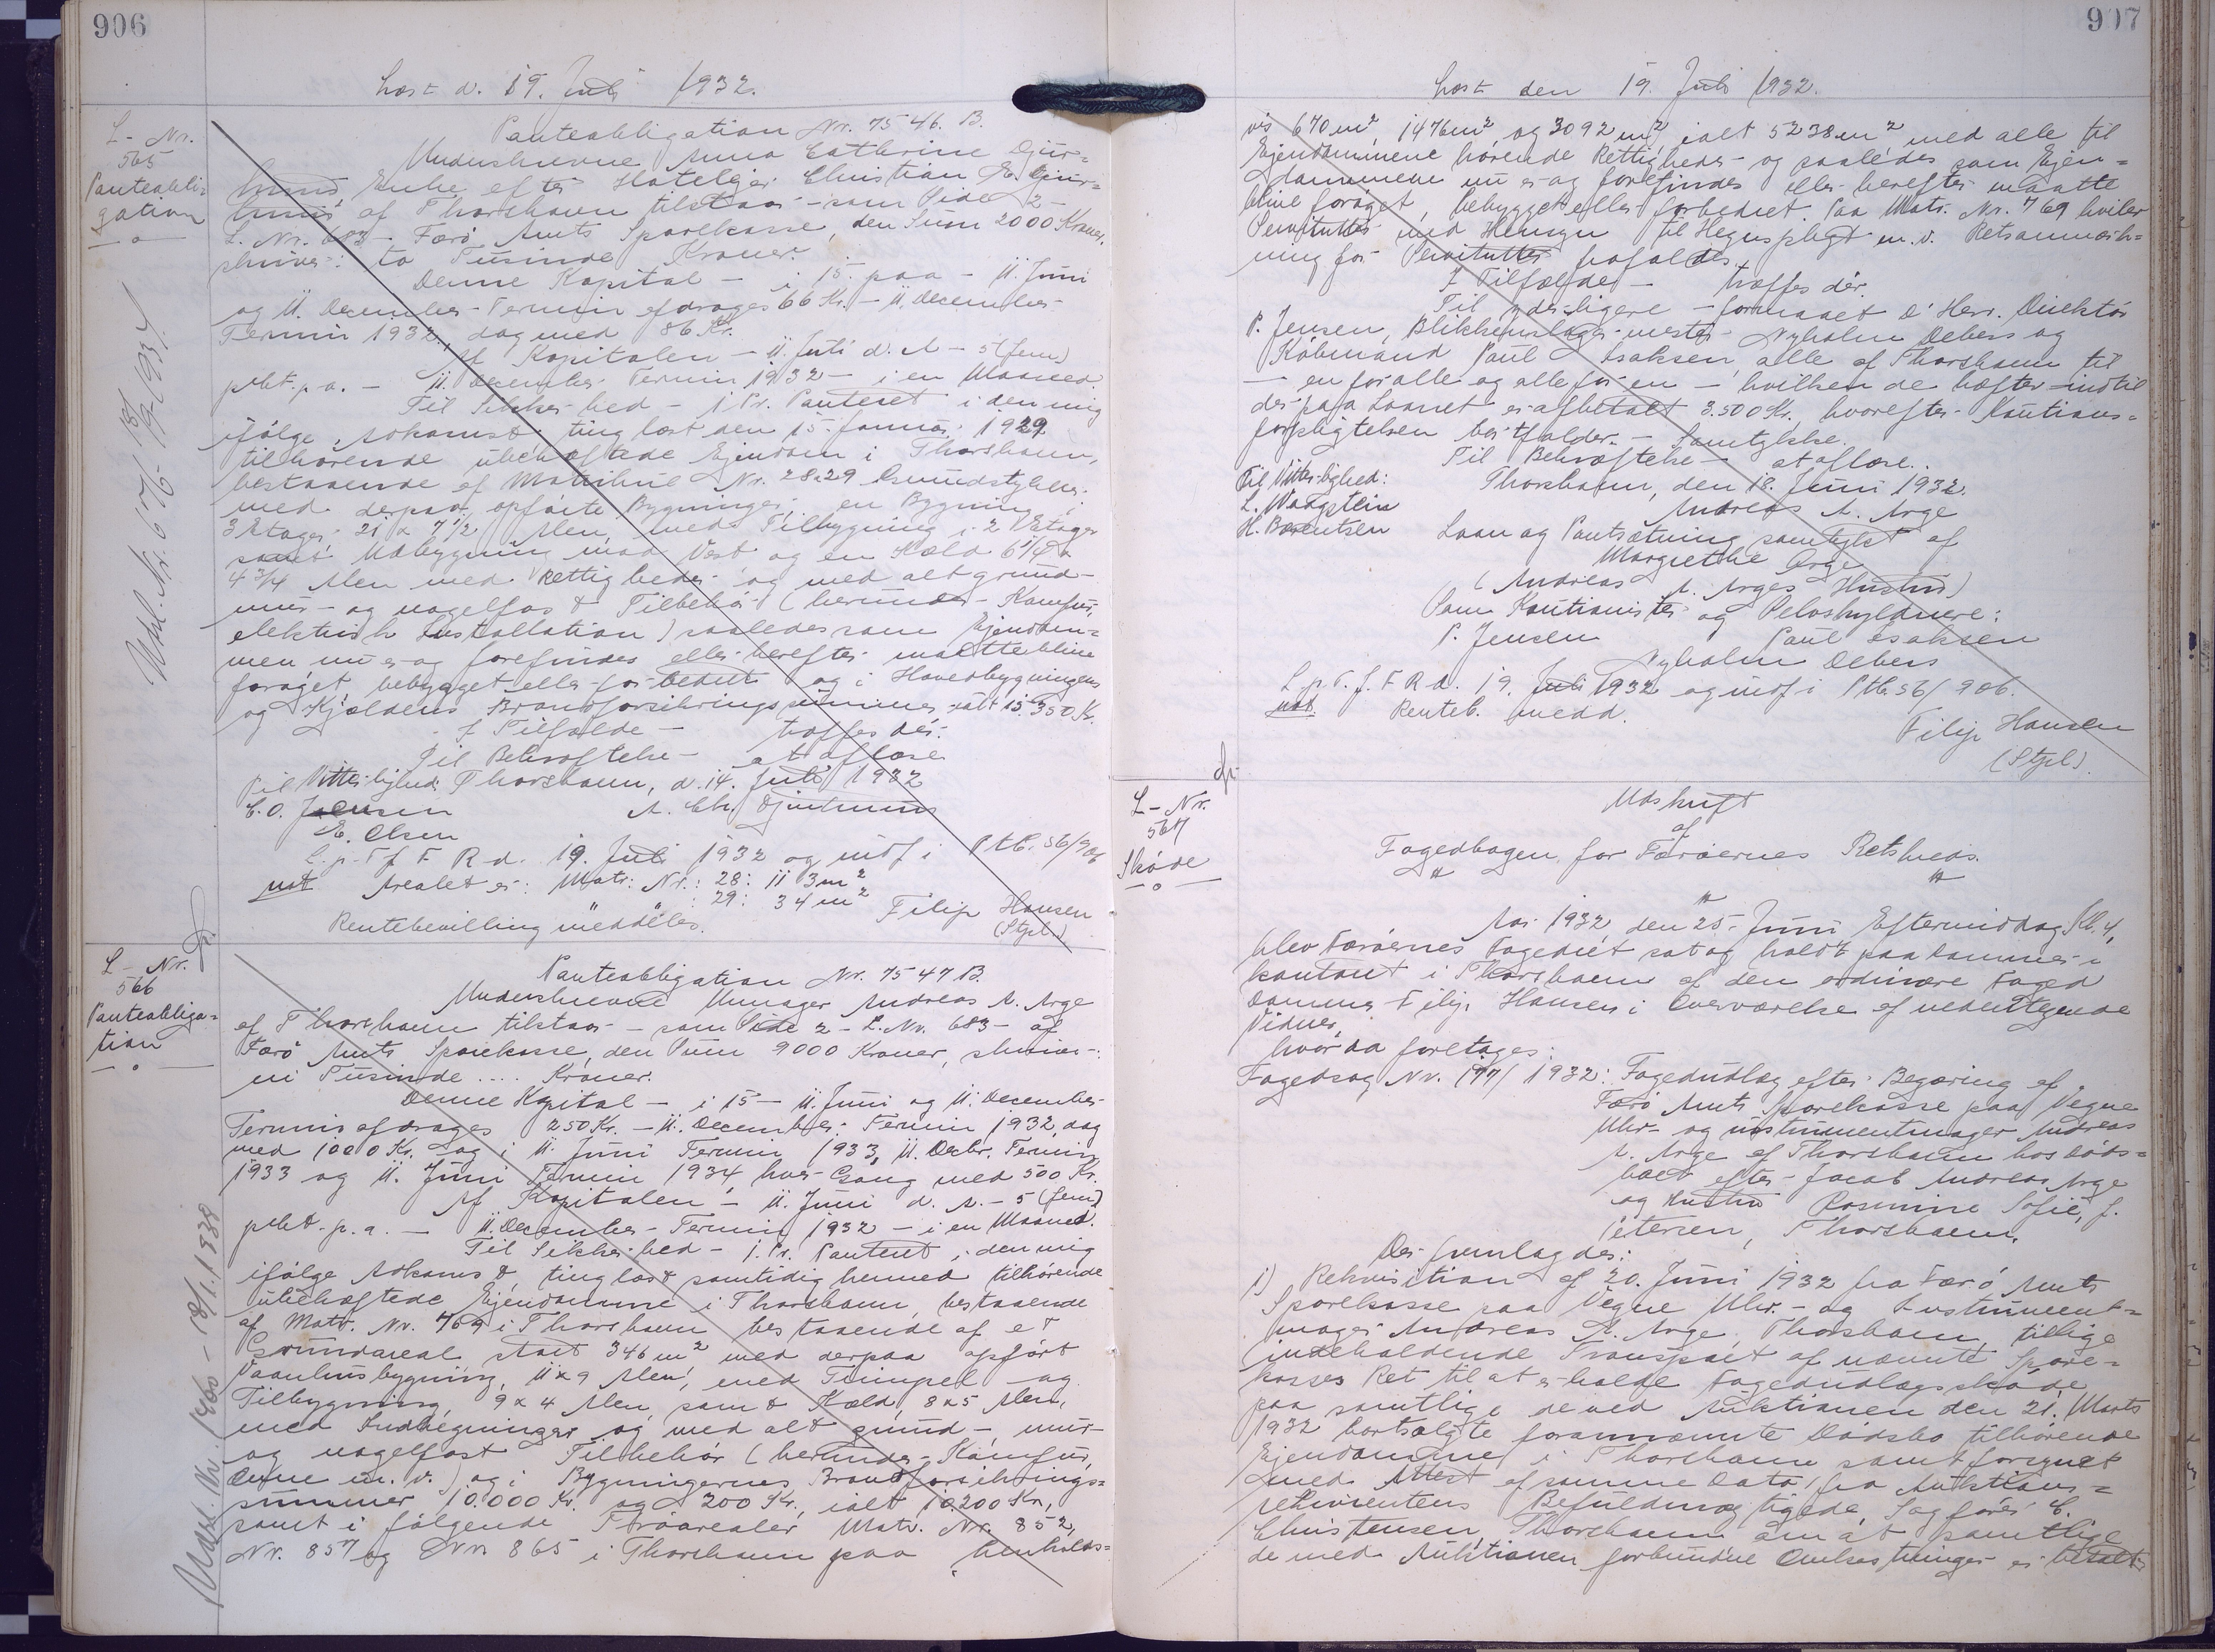 906
Læst d. 19. Juli 1932.
L-Nr.
565
Panteobli=
gation
Panteobligation Nr. 7546. B.
Underskrevne Anna Cathrine Djur=
huus Enke efter Hotelejer Christian E. Djur=
huus af Thorshavn tilstaar - som Side 2 -
L. Nr. 683 - Færø Amts Sparekasse, den Sum 2000 Kroner,
skriver: to Tusinde Kroner.
Denne Kapital - i 15. paa - 11. Juni
og 11. December-Termin afdrages 66 Kr. - 11. December-
Termin 1932, dog med 86 Kr.
Af Kapitalen - 11. Juli d. A - 5 (fem)
pCt. p.a. - 11. December Termin 1932 - i en Maaned.
Til Sikkerhed - 1. Pr. Panteret i den mig
ifølge Adkomst tinglæst den 15. Januar 1929
tilhørende ubehæftede Ejendom i Thorshavn,
bestaaende af Matrikul Nr. 28 29 Grundstykker
med derpaa opførte Bygninger, en Bygning i
3 Etager 21 x 7 1/2 Alen, med Tilbygning i 2 Etager
samt Udbygning mod Vest og en Kæld 6 1/4 x
4 3/4 Alen med Rettigheder og med alt grund-
mur- og nagelfast Tilbehør (herunder Komfur,
elektrisk Installation) saaledes som Ejendom=
men nu er og forefindes eller herefter maatte blive
forøget, bebygget eller forbedret og i Hovedbygningens
og Kjældens Brandforsikringssummer ialt 15.350 Kr.
I Tilfælde - træffes der.
Til Bekræftelse - at aflæse
Til Vitterlighed: Thorshavn, d. 14. Juli 1932
C. O. Jensen A. Chr. Djurhuus
E. Olsen
L. p. T. f. F. R. d. 19. Juli 1932 og indf i Ptb. 56/906
not Arealet er: Matr. Nr.: 28: 113 m2
" " : 29: 34 m2
Rentebevilling meddeles. Filip Hansen
(Stpl.)
Udsl. Nr. 676 -
L- Nr.
566
Panteobliga=
tion
Panteobligation Nr. 7547 B.
Underskrevne Urmager Andreas A. Arge
af Thorshavn tilstaar - som Side 2 - L. Nr. 683 - af
Færø Amts Sparekasse, den Sum 9000 Kroner, skriver:
ni Tusinde .... Kroner.
Denne Kapital - i 15 - 11. Juni og 11. December-
Termin afdrages 250 Kr. - 11. December Termin 1932, dog
med 1000 Kr. og i 11. Juni Termin 1933, 11. Decbr. Termin
1933 og 11. Juni Termin 1934 hver Gang med 500 Kr.
Af Kapitalen - 11. Juni d. A. - 5 (fem)
pCt. p. a. - 11. December-Termin 1932 - i en Maaned.
Til Sikkerhed - 1. Pr. Panteret i den mig
ifølge Adkomst tinglæst samtidig hermed tilhørende
ubehæftede Ejendomme i Thorshavn, bestaaende
af Matr. Nr. 769 i Thorshavn bestaaende af et
Grundareal stort 346 m2 med derpaa opført
Vaanhusbygning, 11 x 9 Alen, med Frimpel og
Tilbygning, 9 x 4 Alen, samt Kæld, 8 x 5 Alen,
med Indhegninger og med alt grund-, mur-
og nagelfast Tilbehør (herunder Komfur,
Ovne m. v.) og i Bygningernes Brandforsikrings=
summer 10.000 Kr. og 200 Kr., ialt 10.200 Kr.,
samt i følgende Trøarealer Matr. Nr. 852,
Nr. 857 og Nr. 865 i Thorshavn paa henholds=
Udsl. Nr. 1865 - 13/1. 1938
907
Læst den 19. Juli 1932.
vis 670 m2, 1476 m2 og 3092 m2, ialt 5238 m2 med alle til
Ejendommene hørende Rettigheder og saaledes som Ejen=
dommene nu er og forefindes eller herefter maatte
blive forøget, bebygget eller forbedret. Paa Matr. Nr. 769 hviler
Servitutter med Hensyn til Hegnspligt m.v. Retsanmærk=
ning for Servitutter frafaldes.
I Tilfælde - træffes der.
Til yderligere - formaaet d'Herr. Direktør
P. Jensen, Blikkenslagermester Nyholm Debess og
Købmand Paul Isaksen, alle af Thorshavn til
- en for alle og alle for en - hvilken de hæfter indtil
der paa Laanet er afbetalt 3.500 Kr., hvorefter Kautions=
forpligtelsen bortfalder. - Samtykke.
Til Bekræftelse - at aflæse.
Til Vitterlighed: Thorshavn, den 18. Juni 1932.
L. Vangstein Andreas A. Arge
H. Berentsen Laan og Pantsætning samtykt af
Margrethe Arge
(Andreas A. Arges Hustru)
Som Kautionister og Selvskyldnere:
P. Jensen Paul Isaksen
Nyholm Debess
L. p. T. f. F R d. 19. Juli 1932 og indf i Ptb. 56/906.
not. Renteb. medd. Filip Hansen
(Stpl.)
L- Nr.
567
Skøde
Udskrift
af
Fogedbogen for Færøernes Retskreds.
Aar 1932 den 25. Juni Eftermiddag Kl. 4,
blev Færøernes Fogedret sat og holdt paa Dommer=
kontoret i Thorshavn af den ordinære Foged
Dommer Filip Hansen i Overværelse af undertegnede
Vidner,
hvor da foretoges:
Fogedsag Nr. 177/1932: Fogedudlæg efter Begæring af
Færø Amts Sparekasse paa Vegne
Uhr- og instrumentmager Andreas
A. Arge af Thorshavn hos Døds=
boet efter Jacob Andreas Arge
og Hustru Rosmine Sofie, f.
Petersen, Thorshavn.
Der fremlagdes:
1) Rekvisition af 20. Juni 1932 fra Færø Amts
Sparekasse paa Vegne Uhr- og Instrument=
mager Andreas A. Arge, Thorshavn, tillige
indeholdende Transport af nævnte Spare=
kasses Ret til at erholde Fogedudlægsskøde
paa samtlige de ved Auktionen den 21. Marts
1932 bortsolgte forannævnte Dødsbo tilhørende
Ejendomme i Thorshavn samt forsynet
med Attest af samme Dato fra Auktions=
rekvirentens Befuldmægtigede, Sagfører C.
Christensen, Thorshavn om at samtlige
de med Auktionen forbundne Omkostninger er betalt